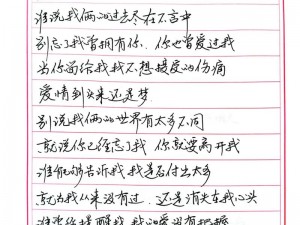 谁说我俩的过去尽在不言中
别忘了我曾拥有你．你也曾爱过我
当你留给我我不想接受的伤痛
爱情到头来还是梦
别说我俩的世界有太多不同
就说你已经忘了我 你就要离开我
谁能够告诉我 我是否付出太多
就当我从来没有过．还是消失在我心头
谁曾经提醒我 我的爱没有把握